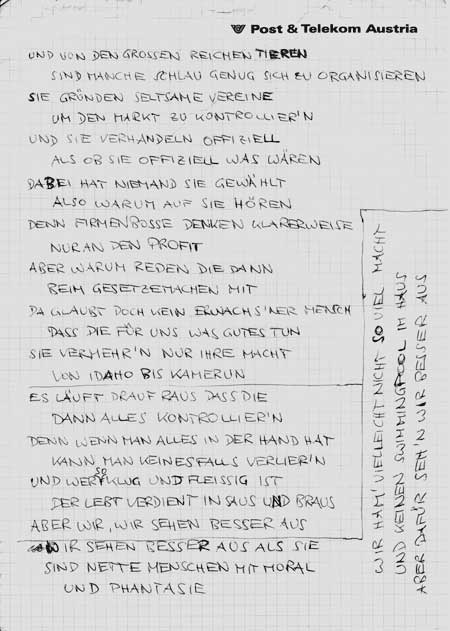 Post & Telekom Austria
UND VON DEN GROSSEN REICHEN TIEREN
SIND MANCHE SCHLAU GENUG SICH ZU ORGANISIEREN
SIE GRÜNDEN SELTSAME VEREINE
UM DEN MARKT ZU KONTROLLIER'N
UND SIE VERHANDELN OFFIZIELL
ALS OB SIE OFFIZIELL WAS WÄREN
DABEI HAT NIEMAND SIE GEWÄHLT
ALSO WARUM AUF SIE HÖREN
DENN FIRMENBOSSE DENKEN KLARERWEISE
NUR AN DEN PROFIT
ABER WARUM REDEN DIE DANN
BEIM GESETZEMACHEN MIT
DA GLAUBT DOCH KEIN ERWACHS'NER MENSCH
DASS DIE FÜR UNS WAS GUTES TUN
SIE VERMEHR'N NUR IHRE MACHT
VON IDAHO BIS KAMERUN
ES LÄUFT DRAUF RAUS DASS DIE
DANN ALLES KONTROLLIER'N
DENN WENN MAN ALLES IN DER HAND HAT
KANN MAN KEINESFALLS VERLIER'N
UND WER SO KLUG UND FLEISSIG IST
DER LEBT VERDIENT IN SAUS UND BRAUS
ABER WIR, WIR SEHEN BESSER AUS
WIR SEHEN BESSER AUS ALS SIE
SIND NETTE MENSCHEN MIT MORAL
UND PHANTASIE
WIR HAM' VIELLEICHT NICHT SO VIEL MACHT
UND KEINEN SWIMMINGPOOL IM HAUS
ABER DAFÜR SEH'N WIR BESSER AUS